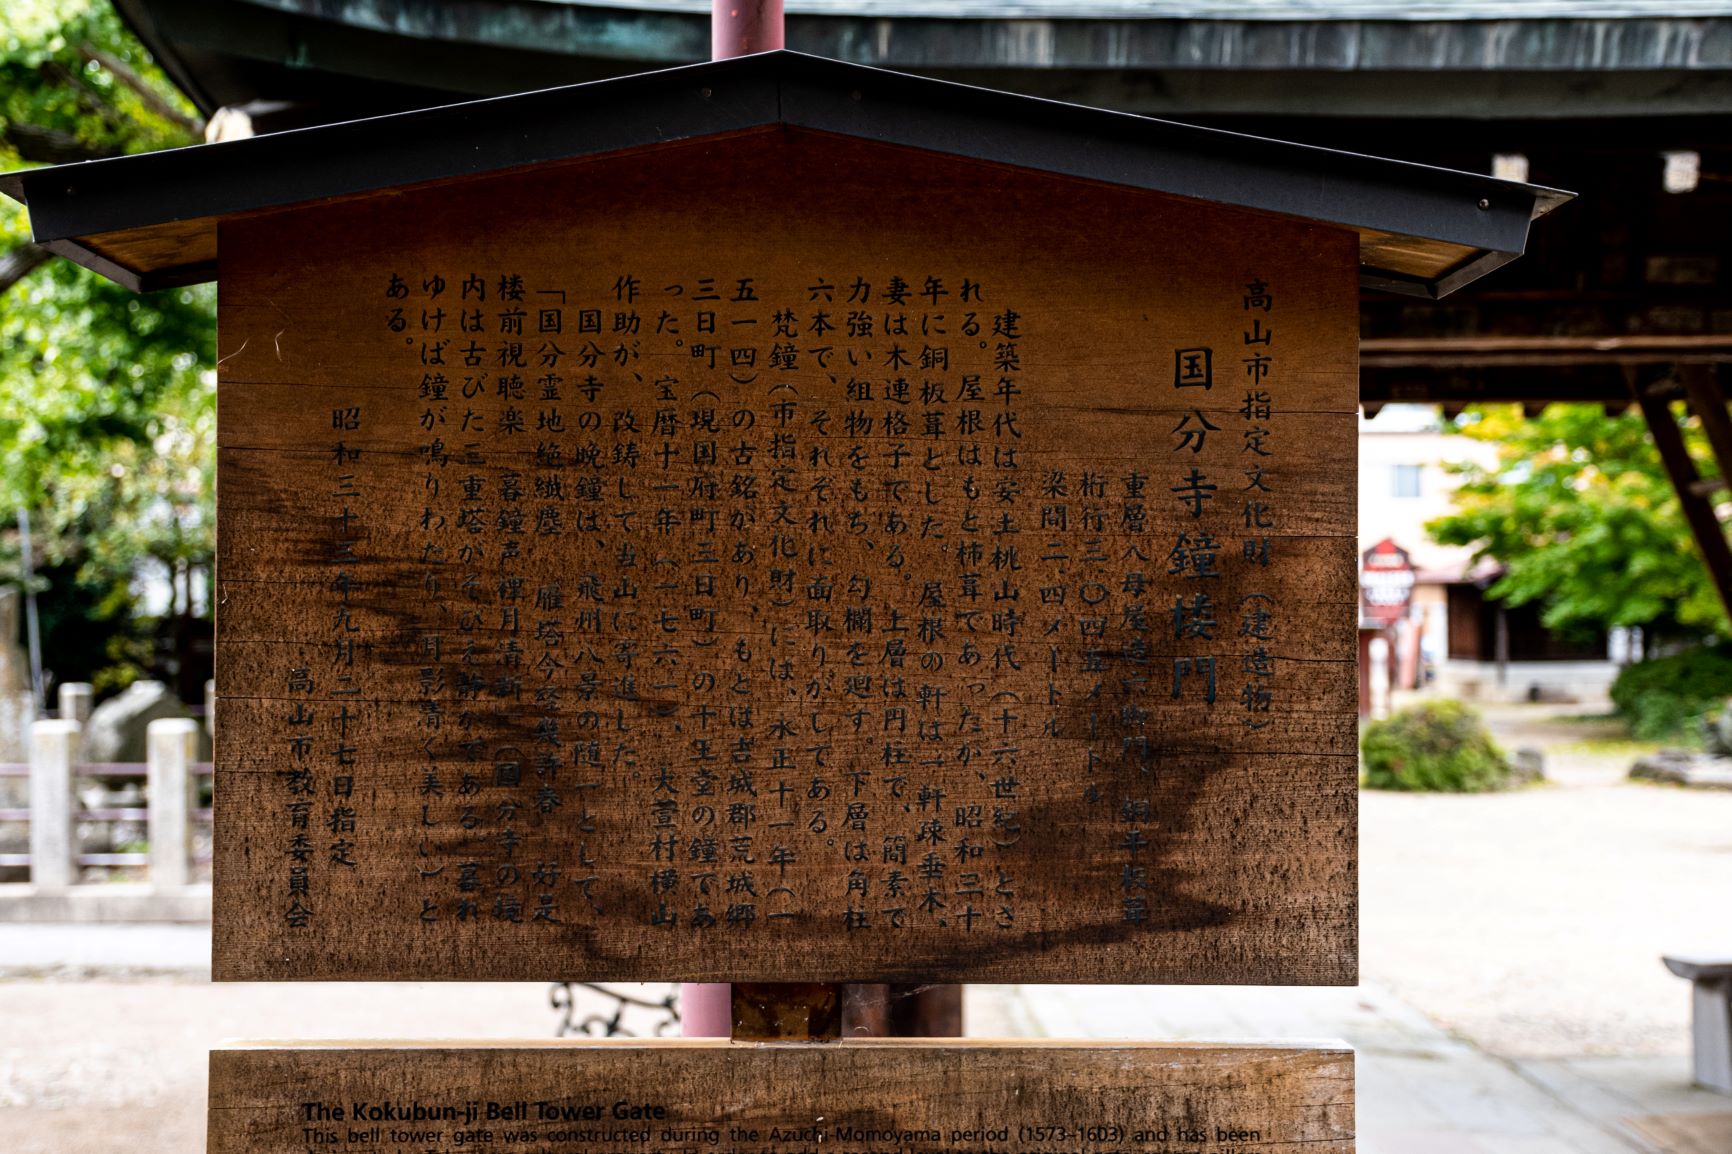 高山市指定文化財（建造物）
国分寺鐘楼門
重層八母屋造六脚門、銅平板葺
桁行三〇四五メートル
梁間二、四メートル
建築年代は安土桃山時代（十六世紀）とさ
れる。屋根はもと柿葺であったが、昭和三十
年に銅板葺とした。屋根の軒は一軒疎垂木、
妻は木連格子である。上層は円柱で、簡素で
力強い組物をもち、勾欄を廻す。下層は角柱
六本で、それぞれに面取りがしてある。
梵鐘（市指定文化財）には、永正十一年（一
五一四）の古銘があり、もとは吉城郡荒城郷
三日町（現国府町三日町）の十王堂の鐘であ
った。宝暦十一年（一七六一）、大萱村横山
作助が、改鋳して当山に寄進した。
国分寺の晩鐘は、飛州八景の随一として、
「国分霊地絶繊塵 雁塔今経幾許春 好是
楼前視聴楽 暮鐘声裡月清新」（国分寺の境
内は古びた三重塔がそびえ静かである。暮れ
ゆけば鐘が鳴りわたり、月影清く美しい）と
ある。
昭和三十三年九月二十七日指定
高山市教育委員会
The Kokubun-ji Bell Tower Gate
This bell tower gate was constructed during the Azuchi-Momoyama period (1573–1603) and has been